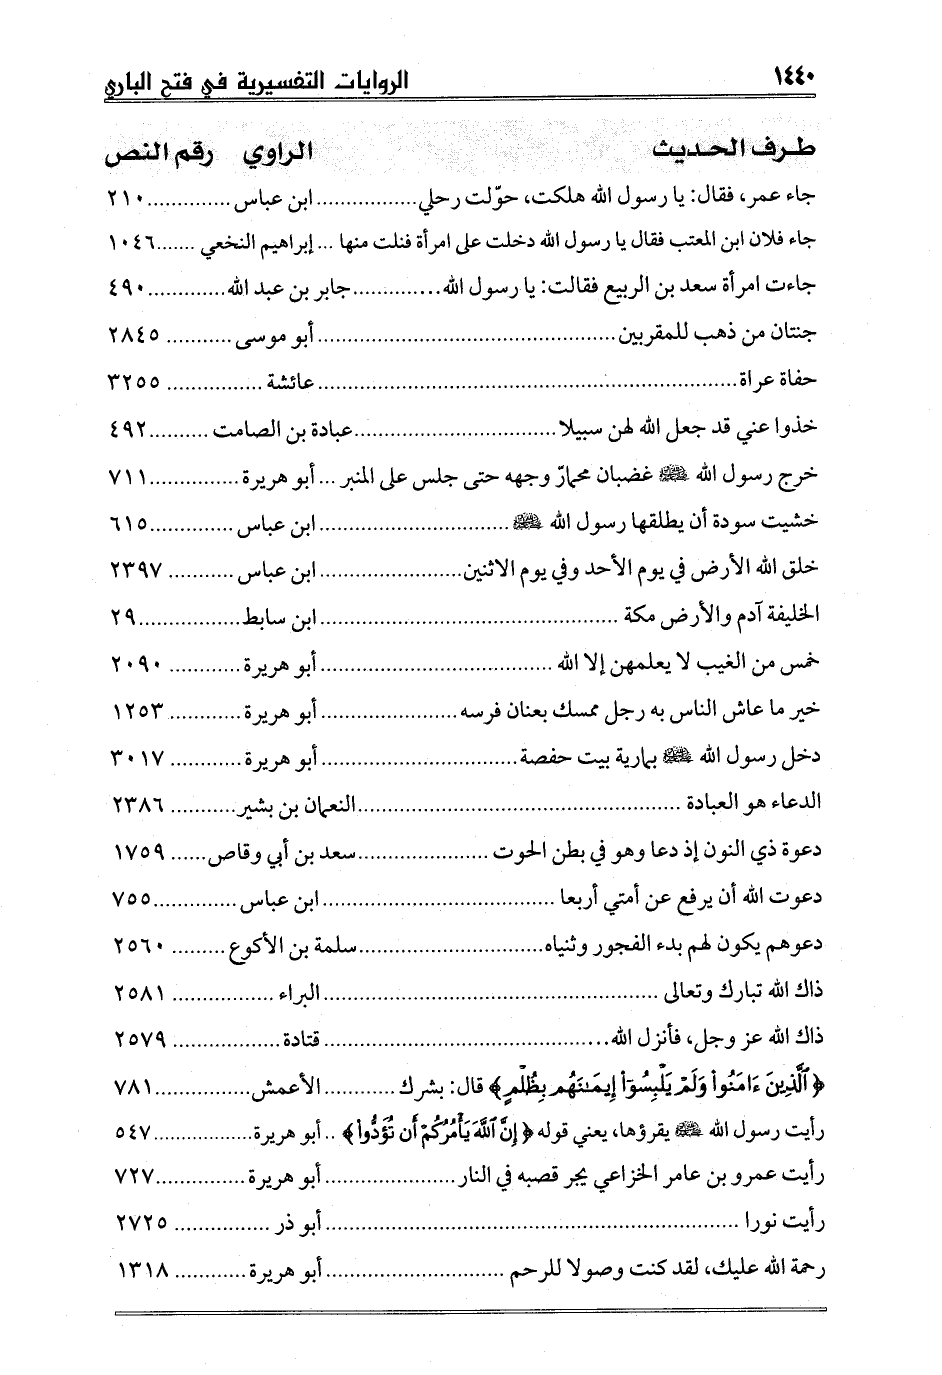 ١٤٤٠ الروايات التفسيرية في فتح الباري
طرف الحديث الراوي رقم النص
جاء عمر، فقال: يا رسول الله هلكت، حوّلت رحلي................. ابن عباس..............٢١٠
جاء فلان ابن المعتب فقال يا رسول الله دخلت على امرأة فنلت منها ... إبراهيم النخعي .......١٠٤٦
جاءت امرأة سعد بن الربيع فقالت: يا رسول الله..............جابر بن عبد الله.............٤٩٠
جنتان من ذهب للمقربين................................................أبو موسى ........... ٢٨٤٥
حفاة عراة......................................................................عائشة ................ ٣٢٥٥
خذوا عني قد جعل الله لهن سبيلا..................................عبادة بن الصامت ..........٤٩٢
خرج رسول الله ﷺ غضبان محمارّ وجهه حتى جلس على المنبر ... أبو هريرة...............٧١١
خشيت سودة أن يطلقها رسول الله ﷺ................................ابن عباس..............٦١٥
خلق الله الأرض في يوم الأحد وفي يوم الاثنين........................ابن عباس........... ٢٣٩٧
الخليفة آدم والأرض مكة ..................................................ابن سابط.................٢٩
خمس من الغيب لا يعلمهن إلا الله .......................................أبو هريرة............ ٢٠٩٠
خير ما عاش الناس به رجل ممسك بعنان فرسه.......................أبو هريرة............ ١٢٥٣
دخل رسول الله ﷺ بمارية بيت حفصة.................................أبو هريرة............ ٣٠١٧
الدعاء هو العبادة ......................................................النعمان بن بشير........... ٢٣٨٦
دعوة ذي النون إذ دعا وهو في بطن الحوت ......................سعد بن أبي وقاص...... ١٧٥٩
دعوت الله أن يرفع عن أمتي أربعا .......................................ابن عباس..............٧٥٥
دعوهم يكون لهم بدء الفجور وثنياه...............................سلمة بن الأكوع......... ٢٥٦٠
ذاك الله تبارك وتعالى ........................................................البراء ................. ٢٥٨١
ذاك الله عز وجل، فأنزل الله................................................قتادة.................. ٢٥٧٩
﴿ٱلَّذِينَ ءَامَنُواْ وَلَمْ يَلْبِسُوٓاْ إِيمَـٰنَهُم بِظُلْمٍ﴾ قال: بشرك ............الأعمش................٧٨١
رأيت رسول الله ﷺ يقرؤها، يعني قوله ﴿إِنَّ ٱللَّهَ يَأْمُرُكُمْ أَن تُؤَدُّواْ﴾ .. أبو هريرة.................٥٤٧
رأيت عمرو بن عامر الخزاعي يجر قصبه في النار......................أبو هريرة...............٧٢٧
رأيت نورا .....................................................................أبو ذر ................ ٢٧٢٥
رحمة الله عليك، لقد كنت وصولا للرحم ..............................أبو هريرة............ ١٣١٨